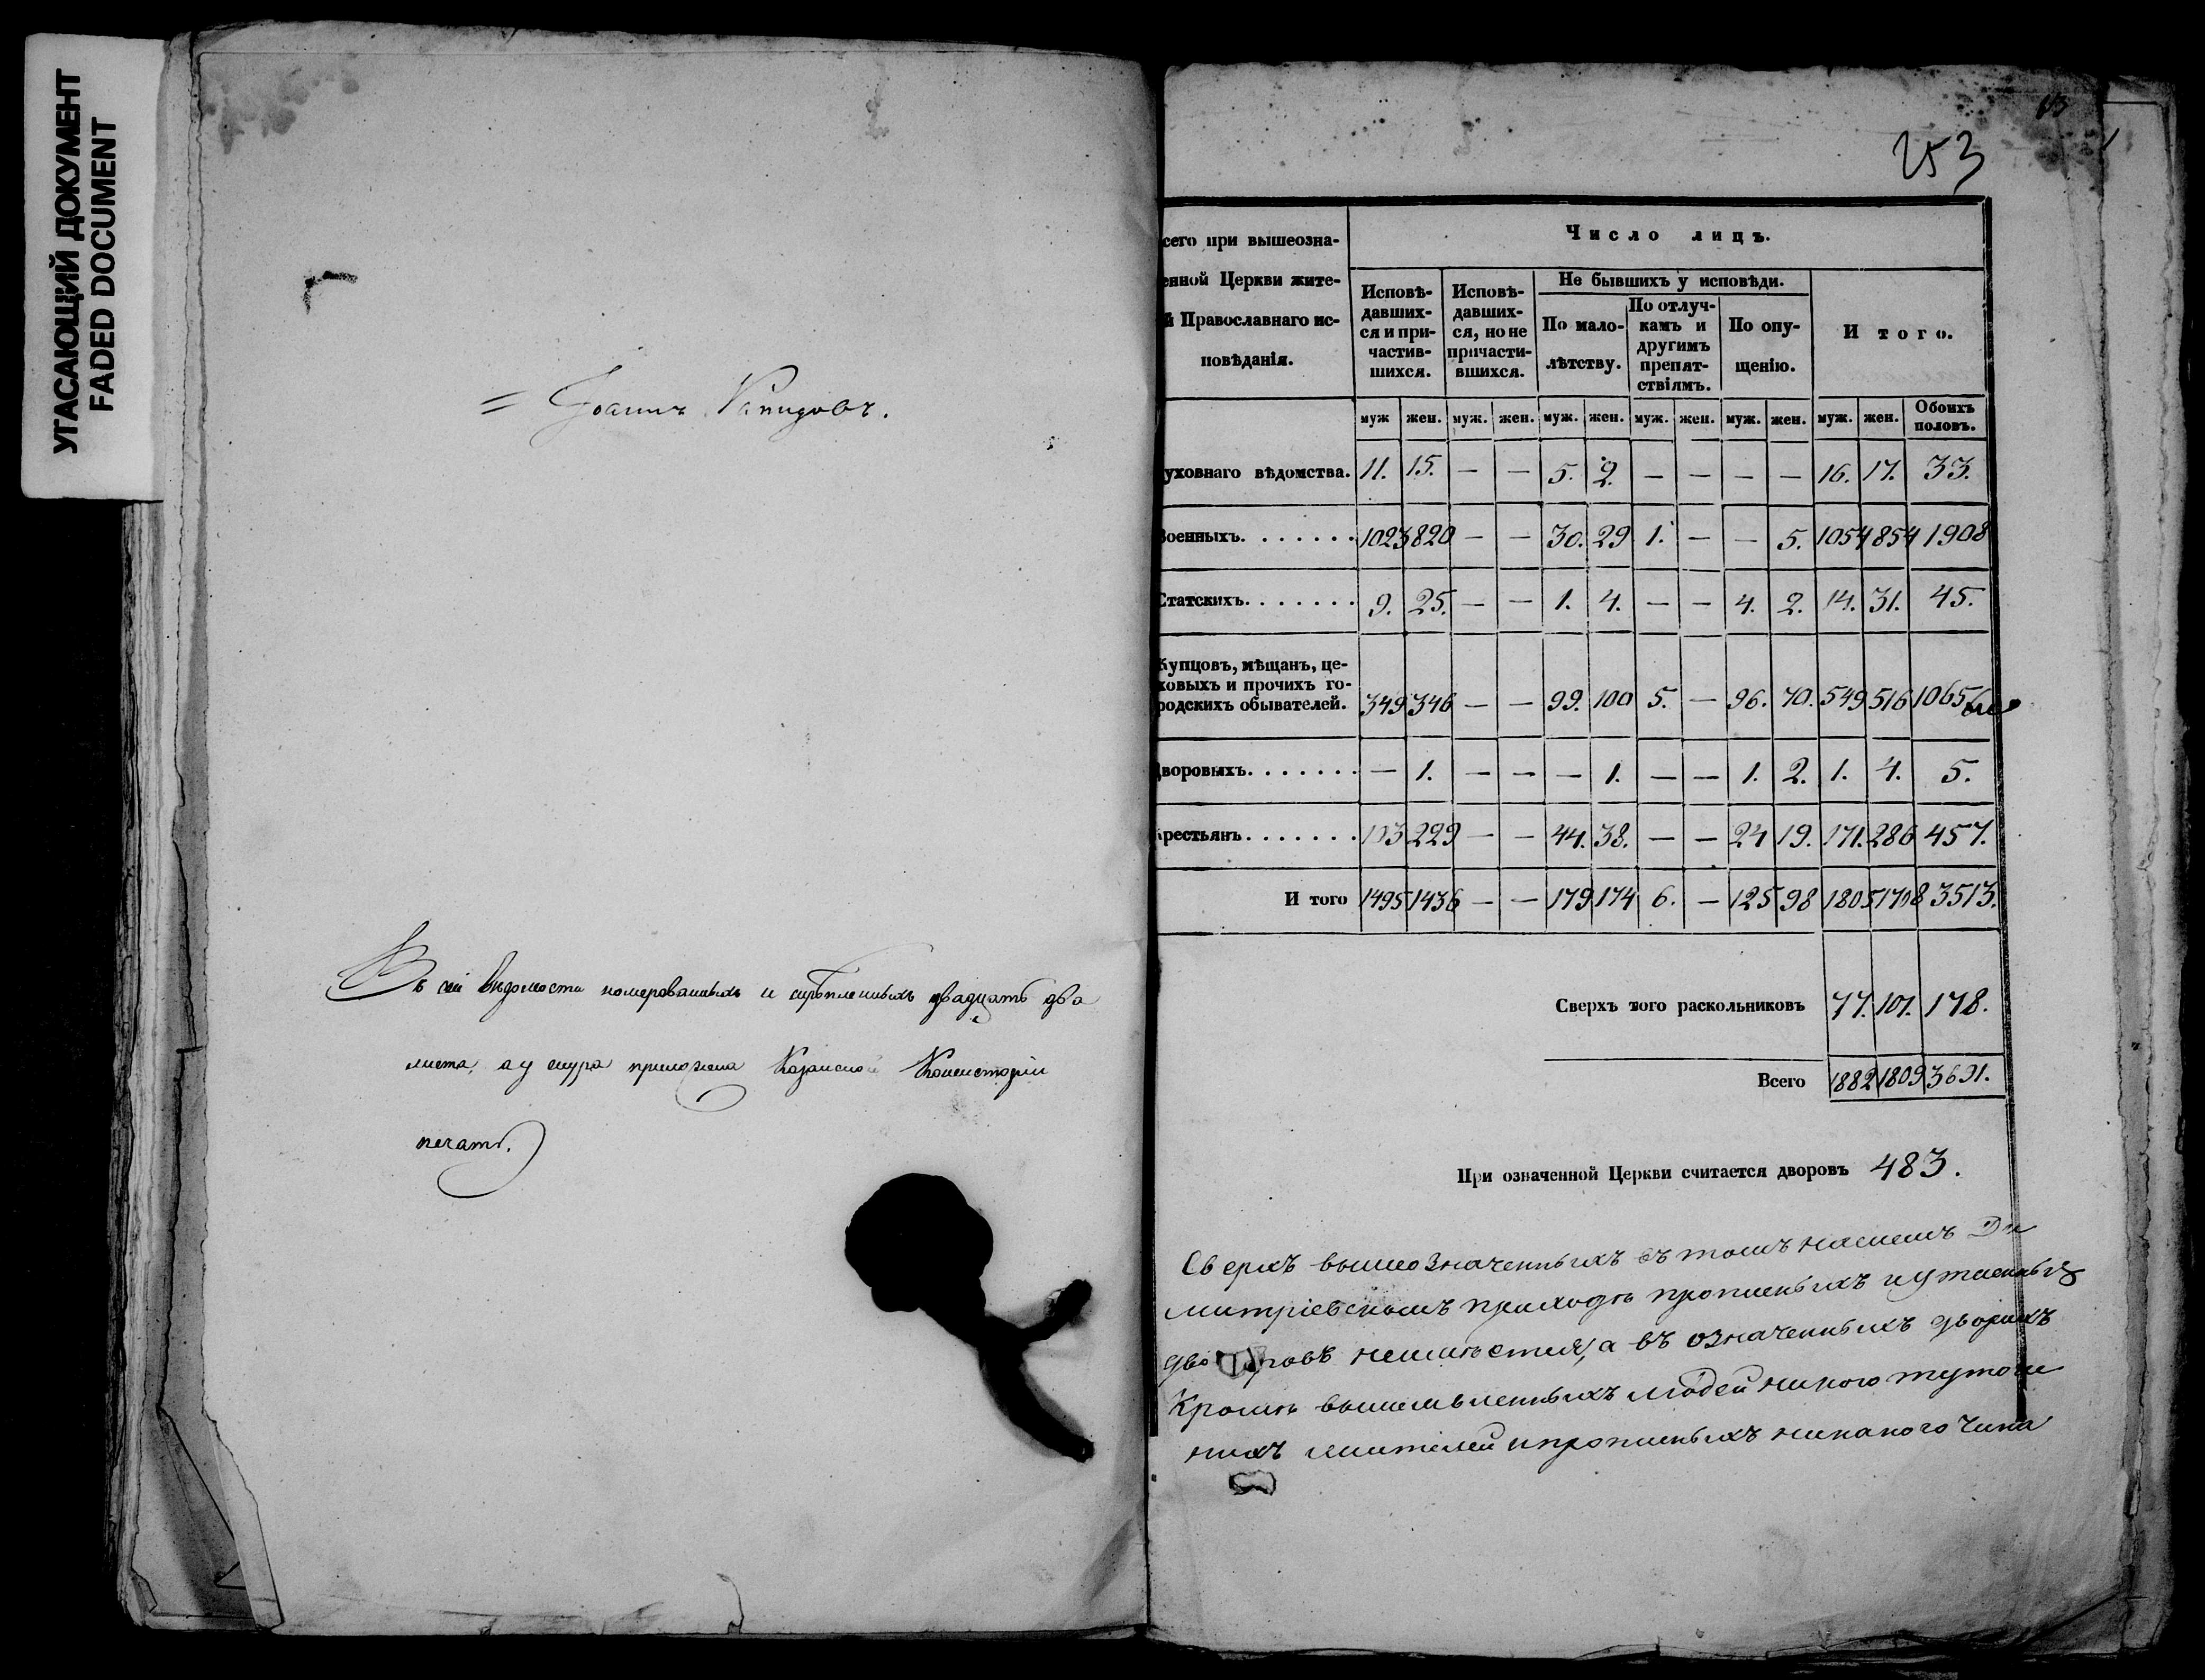 УГАСАЮЩИЙ ДОКУМЕНТ
FADED DOCUMENT
= Іоаннъ
Въ сей ведомости номерованныхъ и скрѣпленныхъ двадцать два
листа, а у шнура приложена Казанской Консисторіи
печать.
253
сего при вышеозна-
енной Церкви жите-
й Православнаго ис-
повѣданія.
Число лицъ.
Исповѣ-
давших-
ся и при-
частив-
шихся.
Исповѣ-
давших-
ся, но не
причасти-
вшихся.
Не бывшихъ у исповѣди.
По мало-
лѣтству.
По отлуч-
камъ и
другимъ
препят-
ствіямъ.
По опу-
щенію.
Итого.
муж жен. муж. жен. муж. жен. муж. жен. муж. жен. муж. жен. Обоихъ половъ.
уховнаго вѣдомства. 11. 15. — — 5. 2. — — — — 16. 17. 33.
Военныхъ. . . . . . . 1023 820 — — 30. 29 1. — — 5. 1054 854 1908
Статскихъ. . . . . . . 9. 25. — — 1. 4. — — 4. 2. 14. 31. 45.
Купцовъ, мѣщанъ, це-
ховыхъ и прочихъ го-
родскихъ обывателей. 349 346 — — 99. 100 5. — 96. 70. 549 516 1065
дворовыхъ. . . . . . . — 1. — — — 1. — — 1. 2. 1. 4. 5.
крестьянъ. . . . . . . 103 229 — — 44. 38. — — 24 19. 171. 286 457.
И того 1495 1436 — — 179 174 6. — 125 98 1805 1708 3513.
Сверхъ того раскольниковъ 77. 101. 178.
Всего 1882 1809 3691.
При означенной Церкви считается дворовъ 483.
Сверхъ вышеозначенныхъ въ томъ нашемъ Ди
митріевскомъ приходѣ прописныхъ и утаенныхъ
дворовъ неимѣется, а въ означенныхъ дворахъ
Кромѣ вышеявленныхъ людей никого тутоше
нихъ жителей и прописныхъ никакого чина